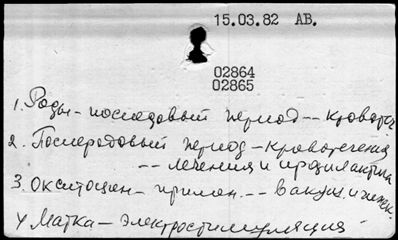 15.03.82 АВ.
02864
02865
1. Роды - последовый период -- кроватеч
2. Послеродовый период - кровотечения
-- лечения и профилактика
3. Окситоцин - примен. -- в акуш. и гинек.
4 Матка - электростимуляция